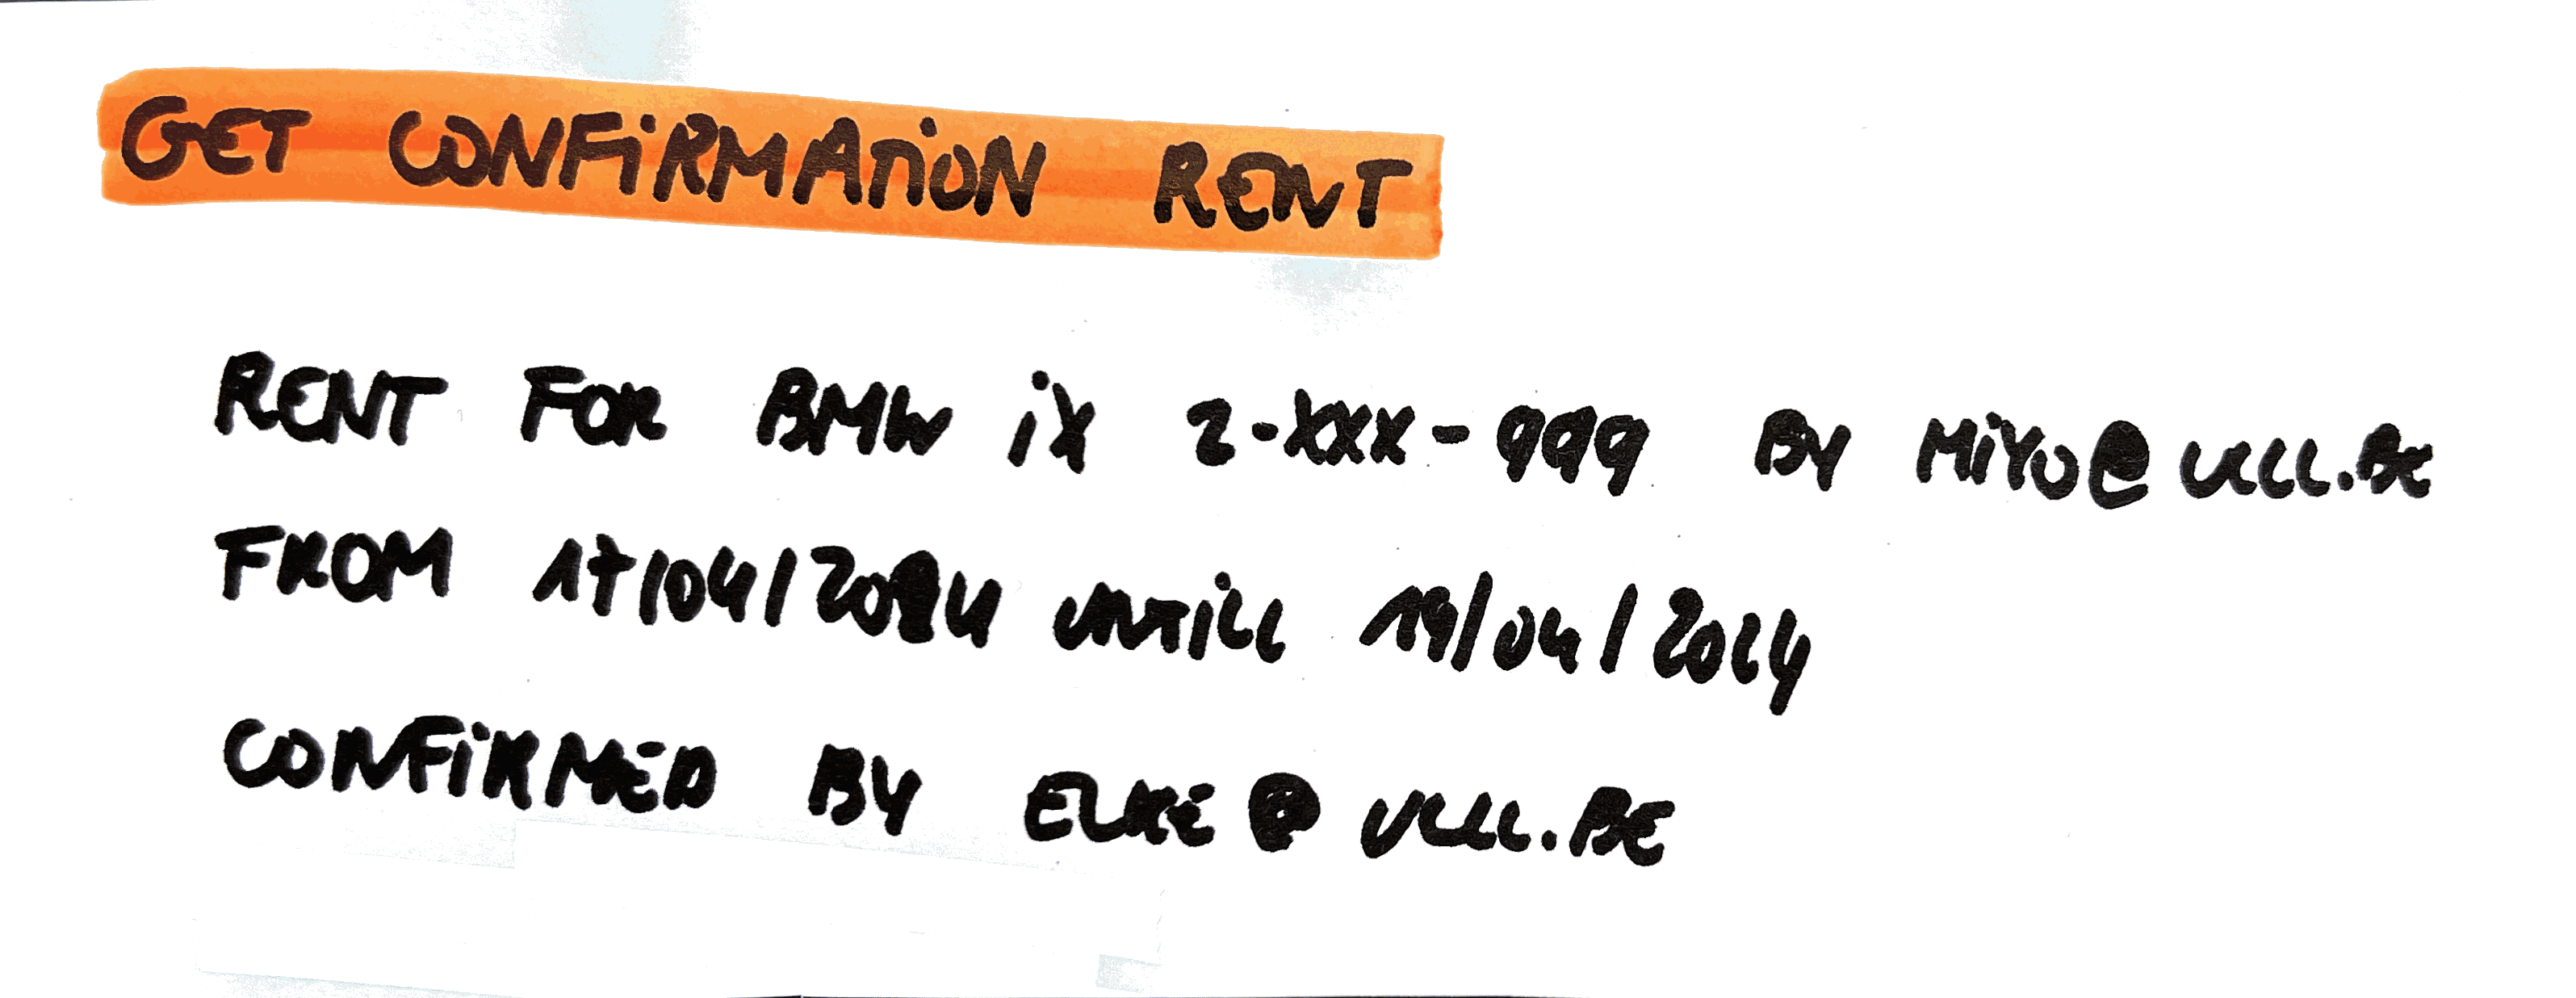 GET CONFIRMATION RENT
RENT FOR BMW iX 2-XXX-999 BY MIYO@UCLL.BE
FROM 17/04/2024 UNTILL 19/04/2024
CONFIRMED BY ELKE@UCLL.BE